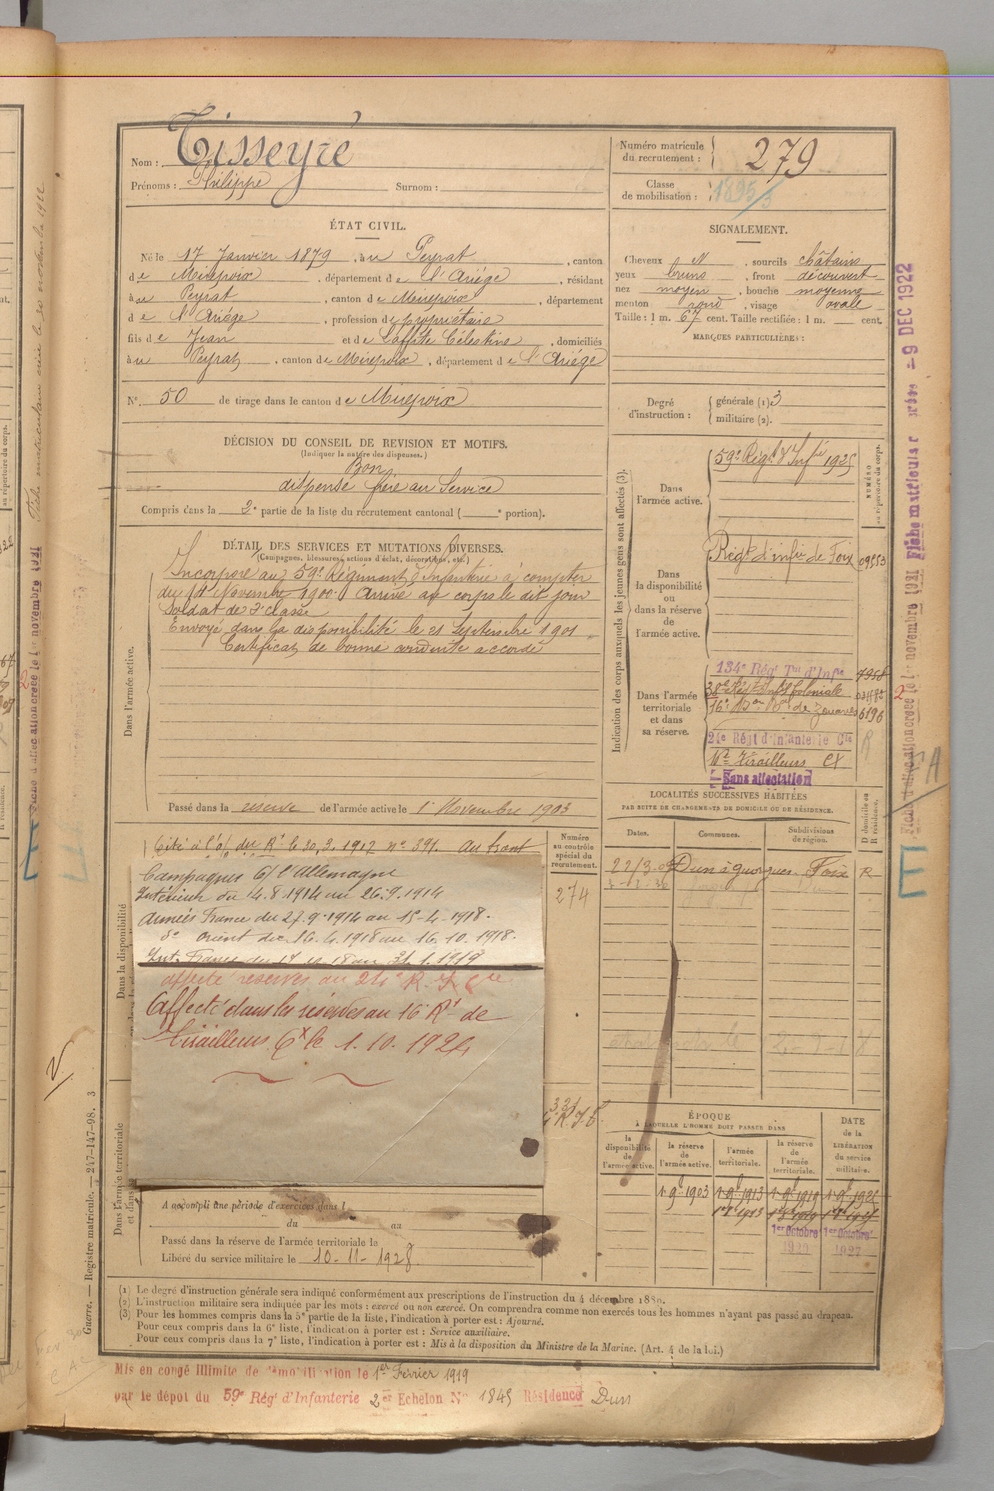 Nom : Tisseyré
Prénoms : Philippe Surnom :
Numéro matricule du recrutement : 279
Classe de mobilisation : 1895/3
ÉTAT CIVIL.
Né le 17 Janvier 1879, à Peyrat, canton
de Mirepoix, département de l'Ariège, résidant
à Peyrat, canton de Mirepoix, département
de l'Ariège, profession de propriétaire
fils de Jean et de Laffite Célestine, domiciliés
à Peyrat, canton de Mirepoix, département de l'Ariége
N° 50 de tirage dans le canton de Mirepoix
SIGNALEMENT.
Cheveux N, sourcils châtains
yeux bruns, front découvert
nez moyen, bouche moyenne
menton rond, visage ovale
Taille : 1 m. 67 cent. Taille rectifiée : 1 m. cent.
MARQUES PARTICULIÈRES :
Degré d'instruction : générale (1) 3
militaire (2).
DÉCISION DU CONSEIL DE REVISION ET MOTIFS.
(Indiquer la nature des dispenses.)
Bon
dispensé frère au Service
Compris dans la 2e partie de la liste du recrutement cantonal ( e portion).
DÉTAIL DES SERVICES ET MUTATIONS DIVERSES.
(Campagnes, blessures, actions d'éclat, décorations, etc.)
Dans l'armée active.
Incorporé au 59e Régiment d'Infanterie à compter
du 14 Novembre 1900. Arrivé au corps le dit jour
Soldat de 2e classe
Envoyé dans la disponibilité le 21 Septembre 1901
Certificat de bonne conduite accordé
Passé dans la réserve de l'armée active le 1 Novembre 1903
Indication des corps auxquels les jeunes gens sont affectés (3).
NUMÉRO au répertoire du corps.
Dans l'armée active.
59e Régt d'Infie 1925
Dans la disponibilité ou dans la réserve de l'armée active.
Régt d'infie de Foix 09553
Dans l'armée territoriale et dans sa réserve.
134e Régt Tal d'Infie 7958
16e Bon de Zouaves 6196
21e Régt d'Infanterie Cle
16e Tirailleurs
Sans affectation
LOCALITÉS SUCCESSIVES HABITÉES
PAR SUITE DE CHANGEMENTS DE DOMICILE OU DE RÉSIDENCE.
Dates. Communes. Subdivisions de région. D domicile ou R résidence.
Foix R
Dans la disponibilité
Cité à l'o/ du Rt le 30.3.1917 n° 391.
Numéro au contrôle spécial du recrutement.
274
Campagnes C/ l'Allemagne
Intérieur du 14.8.1914 au 26.9.1914
Armées France du 27.9.1914 au 15-4-1918.
do Orient du 16.4.1918 au 16.10.1918.
affecté réserves au 21e R. I. Cle
Affecté dans les réserves au 16 Rt de
Tirailleurs Cx le 1.10.1924
Dans l'armée territoriale
A accompli une période d'exercices dans l
du au
Passé dans la réserve de l'armée territoriale le
Libéré du service militaire le 10-11-1928
ÉPOQUE
À LAQUELLE L'HOMME DOIT PASSER DANS
la disponibilité de l'armée active. la réserve de l'armée active. l'armée territoriale. la réserve de l'armée territoriale. DATE de la LIBÉRATION du service militaire.
1 9bre 1903 1 9bre 1913 1 9bre 1919
1er Octobre 1er Octobre
1927
(1) Le degré d'instruction générale sera indiqué conformément aux prescriptions de l'instruction du 4 décembre 1880.
(2) L'instruction militaire sera indiquée par les mots : exercé ou non exercé. On comprendra comme non exercés tous les hommes n'ayant pas passé au drapeau.
(3) Pour les hommes compris dans la 5e partie de la liste, l'indication à porter est : Ajourné.
Pour ceux compris dans la 6e liste, l'indication à porter est : Service auxiliaire.
Pour ceux compris dans la 7e liste, l'indication à porter est : Mis à la disposition du Ministre de la Marine. (Art. 4 de la loi.)
Guerre. — Registre matricule. — 247-147-98. 3
Mis en congé illimité de démobilisation le 1er Février 1919
par le dépôt du 59e Régt d'Infanterie 2e Echelon N° 1845 Résidence Dun
Fiche d'affectation créée le 1er novembre 1921
Fiche matricule créée 9 DEC 1922